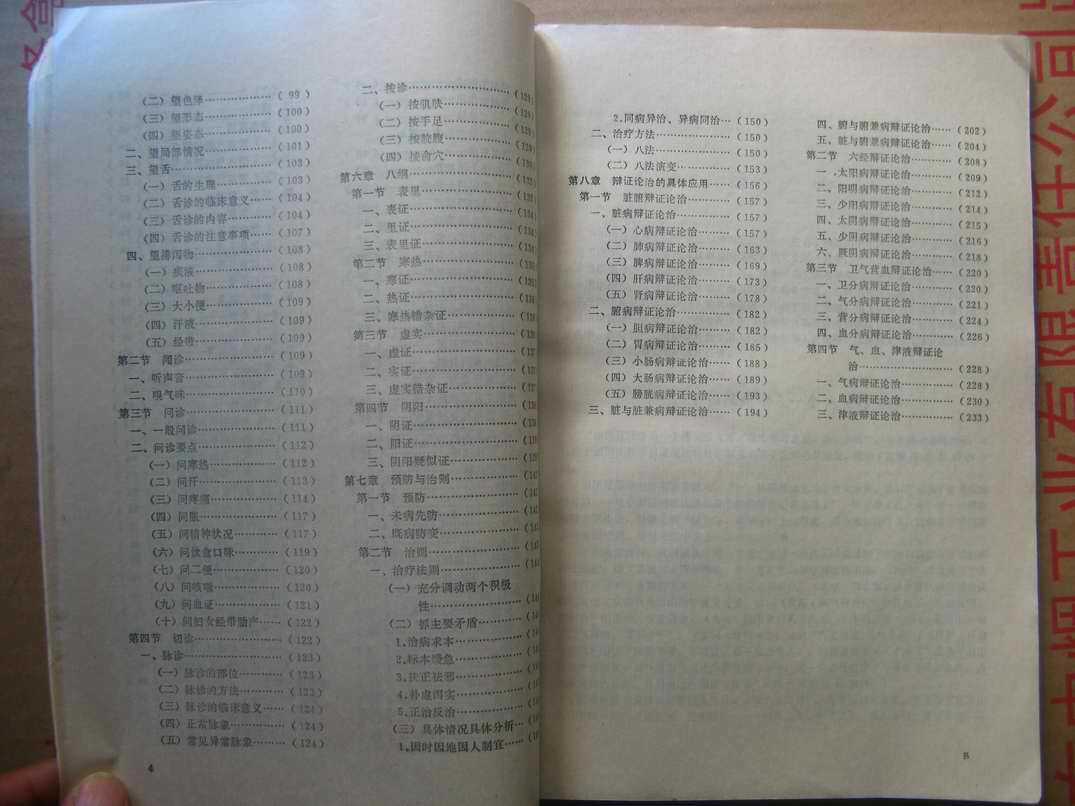 （二）望色泽………………（ 99 ）
（三）望形态………………（100）
（四）望姿态………………（100）
二、望局部情况……………（101）
三、望舌……………………（103）
（一）舌的生理……………（103）
（二）舌诊的临床意义……（104）
（三）舌诊的内容…………（104）
（四）舌诊的注意事项……（107）
四、望排泻物………………（108）
（一）痰液…………………（108）
（二）呕吐物………………（108）
（三）大小便………………（109）
（四）汗液…………………（109）
（五）经带…………………（109）
第二节 闻诊………………（109）
一、听声音…………………（109）
二、嗅气味…………………（110）
第三节 问诊………………（111）
一、一般问诊………………（111）
二、问诊要点………………（112）
（一）问寒热………………（112）
（二）问汗…………………（113）
（三）问疼痛………………（114）
（四）问胀…………………（117）
（五）问精神状况…………（117）
（六）问饮食口味…………（119）
（七）问二便………………（120）
（八）问咳嗽………………（120）
（九）问血证………………（121）
（十）问妇女经带胎产……（122）
第四节 切诊………………（122）
一、脉诊……………………（123）
（一）脉诊的部位…………（123）
（二）脉诊的方法…………（123）
（三）脉诊的临床意义……（124）
（四）正常脉象……………（124）
（五）常见异常脉象………（124）
4
二、按诊……………………
（一）按肌肤………………
（二）按手足………………
（三）按脘腹………………
（四）按俞穴………………
第六章 八纲………………
第一节 表里………………
一、表证……………………
二、里证……………………
三、表里证…………………
第二节 寒热………………
一、寒证……………………
二、热证……………………
三、寒热错杂证……………
第三节 虚实………………
一、虚证……………………
二、实证……………………
三、虚实错杂证……………
第四节 阴阳………………
一、阴证……………………
二、阳证……………………
三、阴阳疑似证……………
第七章 预防与治则………
第一节 预防………………
一、未病先防………………
二、既病防变………………
第二节 治则………………
一、治疗法则………………
（一）充分调动两个积极
性……………………
（二）抓主要矛盾…………
1.治病求本………………
2.标本缓急………………
3.扶正祛邪………………
4.补虚泻实………………
5.正治反治………………
（三）具体情况具体分析…
1.因时因地因人制宜……
2.同病异治、异病同治…（150）
二、治疗方法………………（150）
（一）八法…………………（150）
（二）八法演变……………（153）
第八章 辩证论治的具体应用……（156）
第一节 脏腑辩证论治……（157）
一、脏病辩证论治…………（157）
（一）心病辩证论治………（157）
（二）肺病辩证论治………（163）
（三）脾病辩证论治………（169）
（四）肝病辩证论治………（173）
（五）肾病辩证论治………（178）
二、腑病辩证论治…………（182）
（一）胆病辩证论治………（182）
（二）胃病辩证论治………（185）
（三）小肠病辩证论治……（188）
（四）大肠病辩证论治……（189）
（五）膀胱病辩证论治……（193）
三、脏与脏兼病辩证论治……（194）
四、腑与腑兼病辩证论治……（202）
五、脏与腑兼病辩证论治……（204）
第二节 六经辩证论治……（208）
一、太阳病辩证论治………（209）
二、阳明病辩证论治………（212）
三、少阳病辩证论治………（214）
四、太阴病辩证论治………（215）
五、少阴病辩证论治………（216）
六、厥阴病辩证论治………（218）
第三节 卫气营血辩证论治……（220）
一、卫分病辩证论治………（220）
二、气分病辩证论治………（221）
三、营分病辩证论治………（224）
四、血分病辩证论治………（226）
第四节 气、血、津液辩证论
治……………………（228）
一、气病辩证论治…………（228）
二、血病辩证论治…………（230）
三、津液辩证论治…………（233）
5
工业有限责任公司